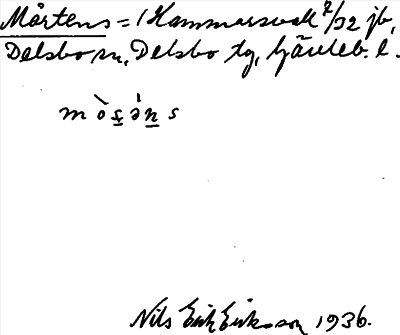 Mårtens = (Hammarsvall 2/32 jb,
Delsbo sn, Delsbo tg, Gävleb. l.
mòṣə́ṇs
Nils Erik Eriksson 1936.